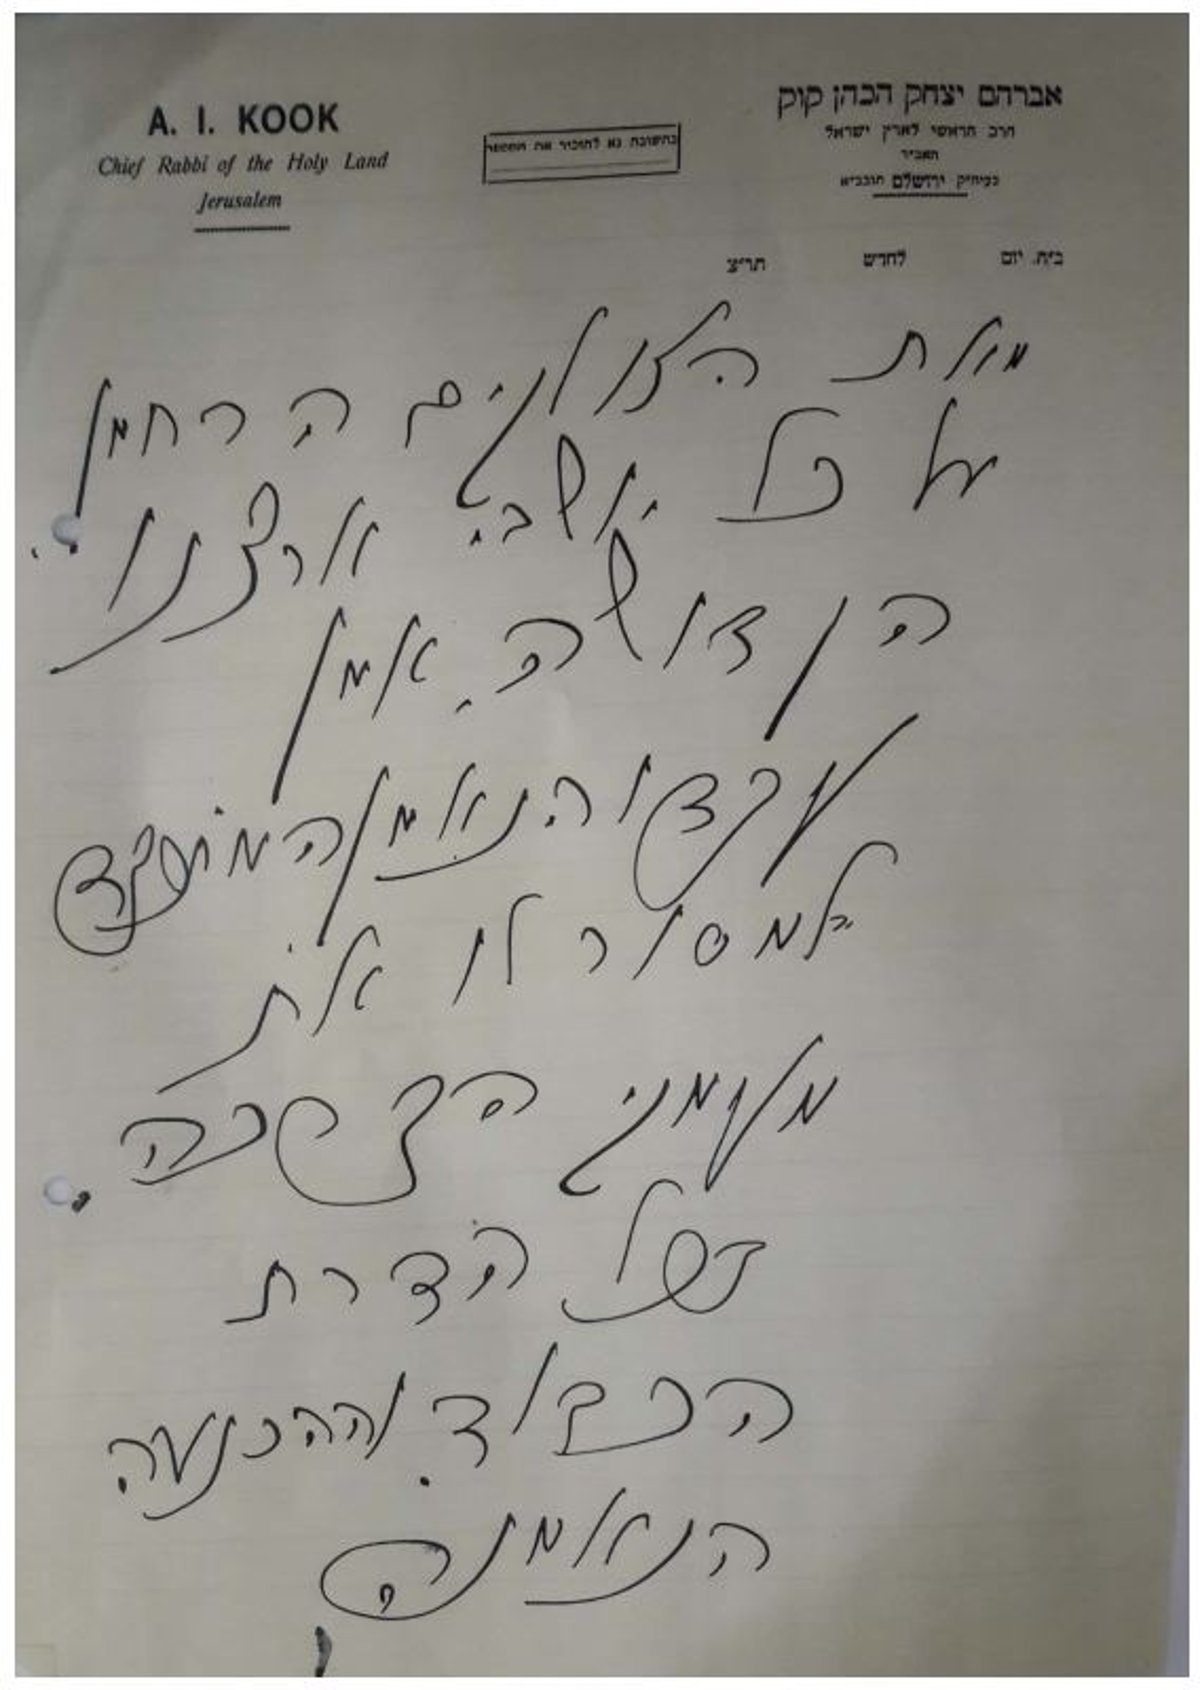 A. I. KOOK
Chief Rabbi of the Holy Land
Jerusalem
בתשובה נא להזכיר את המספר
אברהם יצחק הכהן קוק
הרב הראשי לארץ ישראל
בעיה״ק ירושלם תובב״א
ב״ה. יום לחדש תר״צ
מאת העליונים ה רחמן
על כל יושבי ארצנו
הקדושה, אמן
עבדו הנאמן המתפקד
למסור לו את
מעמקי הברכה
של הדרת
הכבוד וההכנעה
הנאמנה